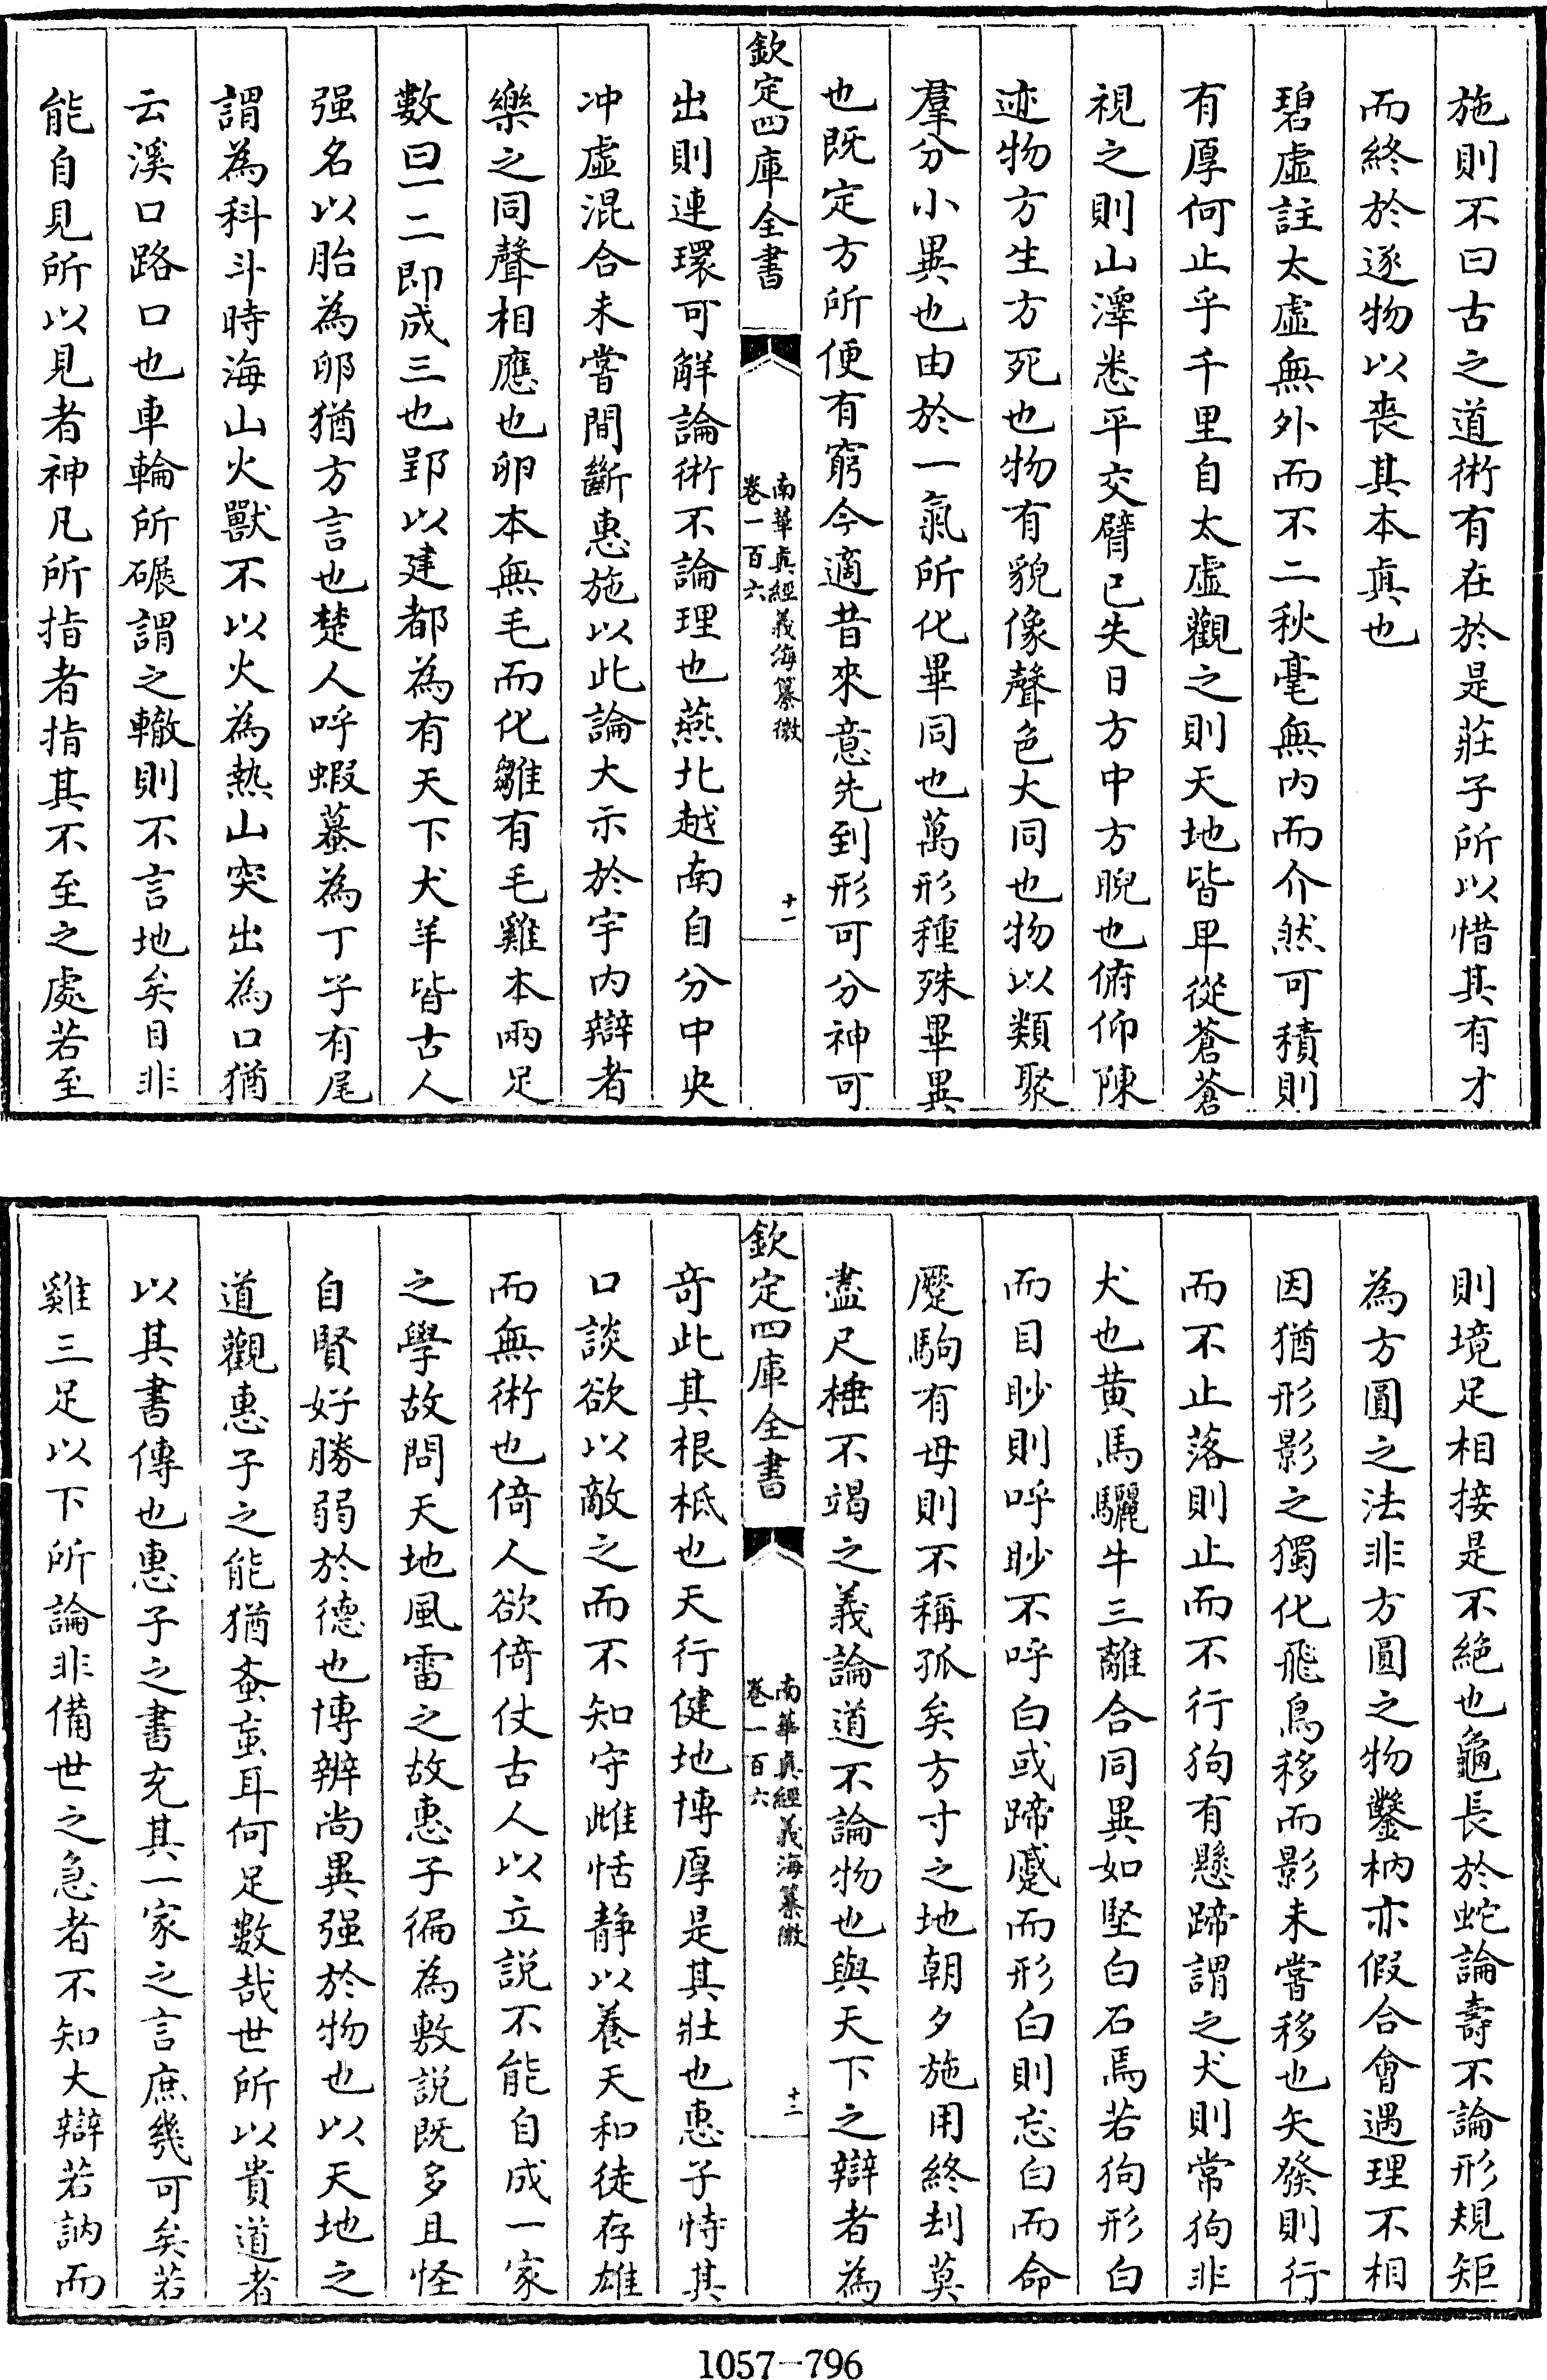 施則不曰古之道術有在於是莊子所以惜其有才
而終於逐物以喪其本真也
碧虛註太虛無外而不二秋毫無内而介然可積則
有厚何止乎千里自太虛觀之則天地皆卑從蒼蒼
視之則山澤悉平交臂已失日方中方睨也俯仰陳
迹物方生方死也物有貌像聲色大同也物以類聚
羣分小異也由於一氣所化畢同也萬形種殊畢異
也既定方所便有窮今適昔來意先到形可分神可
欽定四庫全書
南華真經義海纂微
卷一百六
十一
出則連環可解論術不論理也燕北越南自分中央
冲虛混合未嘗間斷惠施以此論大示於宇内辯者
樂之同聲相應也卵本無毛而化雛有毛雞本兩足
數曰一二即成三也郢以建都為有天下犬羊皆古人
强名以胎為卵猶方言也楚人呼蝦蟇為丁子有尾
謂為科斗時海山火獸不以火為熱山突出為口猶
云溪口路口也車輪所碾謂之轍則不言地矣目非
能自見所以見者神凡所指者指其不至之處若至
則境足相接是不絶也龜長於蛇論壽不論形規矩
為方圓之法非方圓之物鑿枘亦假合會遇理不相
因猶形影之獨化飛鳥移而影未嘗移也矢發則行
而不止落則止而不行狗有懸蹄謂之犬則常狗非
犬也黄馬驪牛三離合同異如堅白石焉若狗形白
而目眇則呼眇不呼白或蹄蹙而形白則忘白而命
蹙駒有母則不稱孤矣方寸之地朝夕施用終刦莫
盡尺棰不竭之義論道不論物也與天下之辯者為
欽定四庫全書
南華真經義海纂微
卷一百六
十二
奇此其根柢也天行健地博厚是其壯也惠子恃其
口談欲以敵之而不知守雌恬静以養天和徒存雄
而無術也倚人欲倚仗古人以立説不能自成一家
之學故問天地風雷之故惠子徧為敷説既多且怪
自賢好勝弱於德也博辨尚異强於物也以天地之
道觀惠子之能猶蚉䖟耳何足數哉世所以貴道者
以其書傳也惠子之書充其一家之言庶幾可矣若
雞三足以下所論非備世之急者不知大辯若訥而
1057-796